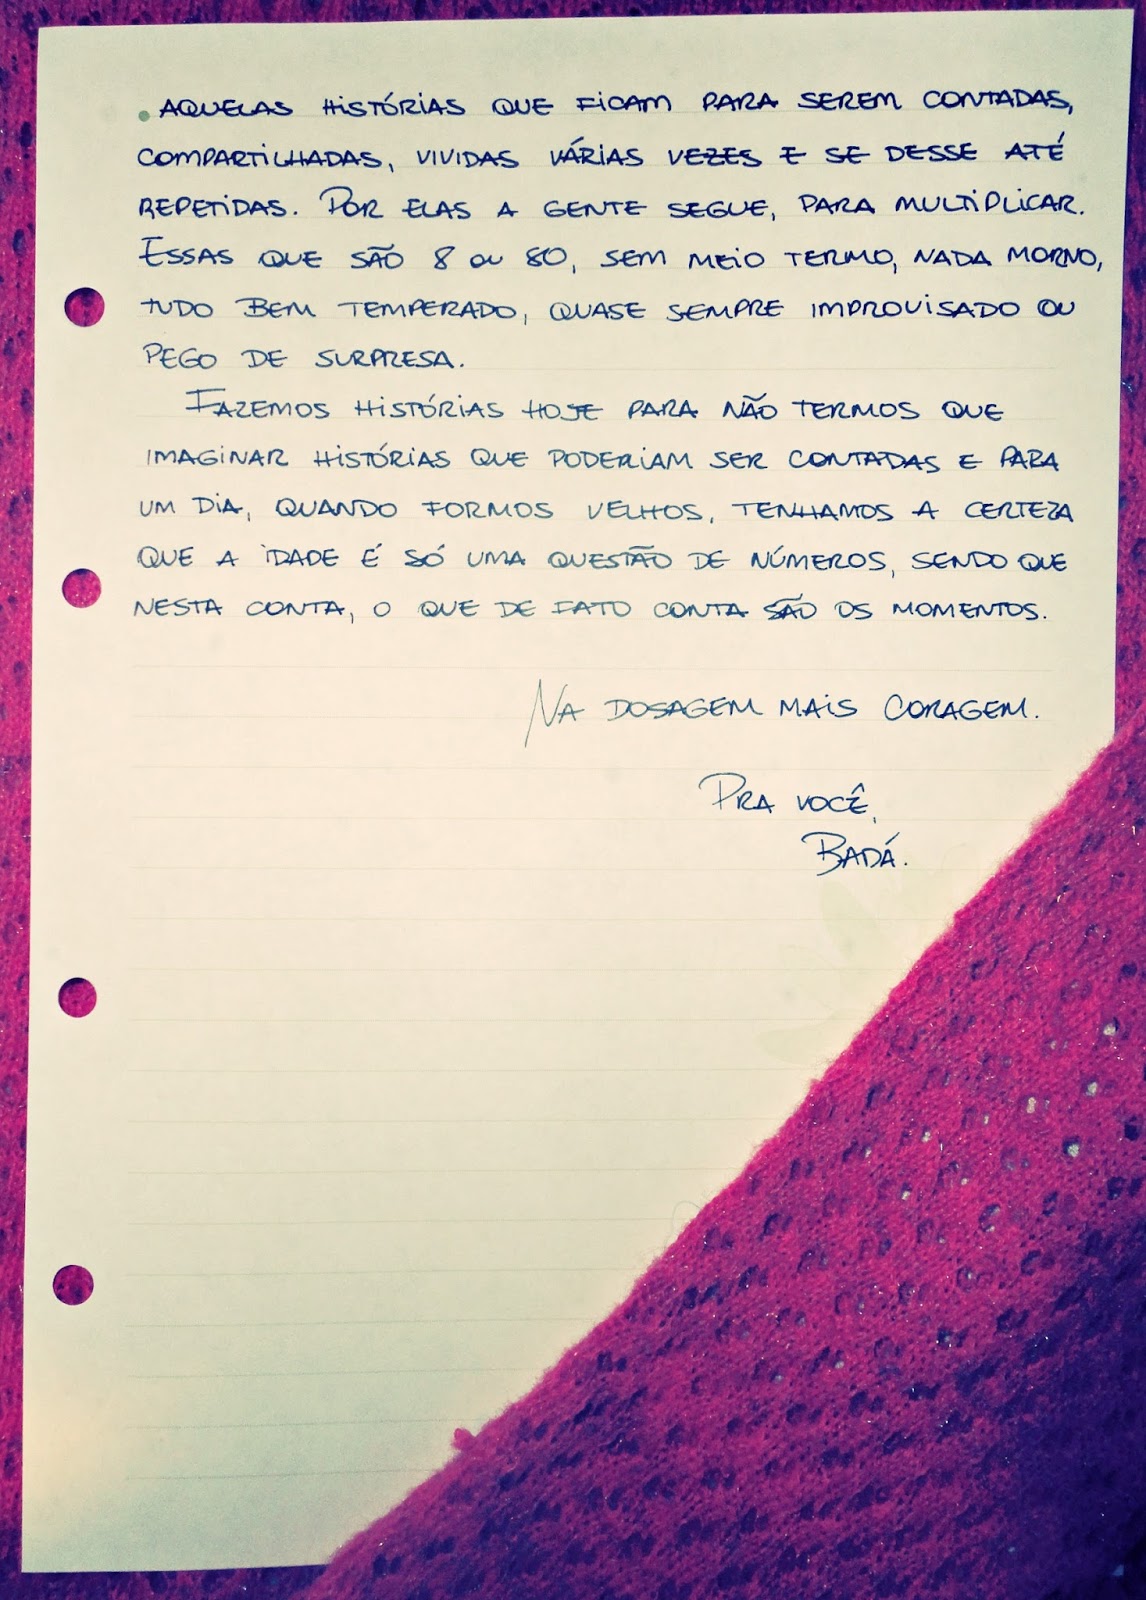 . AQUELAS HISTÓRIAS QUE FICAM PARA SEREM CONTADAS,
COMPARTILHADAS, VIVIDAS VÁRIAS VEZES E SE DESSE ATÉ
REPETIDAS. POR ELAS A GENTE SEGUE, PARA MULTIPLICAR.
ESSAS QUE SÃO 8 OU 80, SEM MEIO TERMO, NADA MORNO,
TUDO BEM TEMPERADO, QUASE SEMPRE IMPROVISADO OU
PEGO DE SURPRESA.
FAZEMOS HISTÓRIAS HOJE PARA NÃO TERMOS QUE
IMAGINAR HISTÓRIAS QUE PODERIAM SER CONTADAS E PARA
UM DIA, QUANDO FORMOS VELHOS, TENHAMOS A CERTEZA
QUE A IDADE É SÓ UMA QUESTÃO DE NÚMEROS, SENDO QUE
NESTA CONTA, O QUE DE FATO CONTA SÃO OS MOMENTOS.
NA DOSAGEM MAIS CORAGEM.
PRA VOCÊ,
BADÁ.